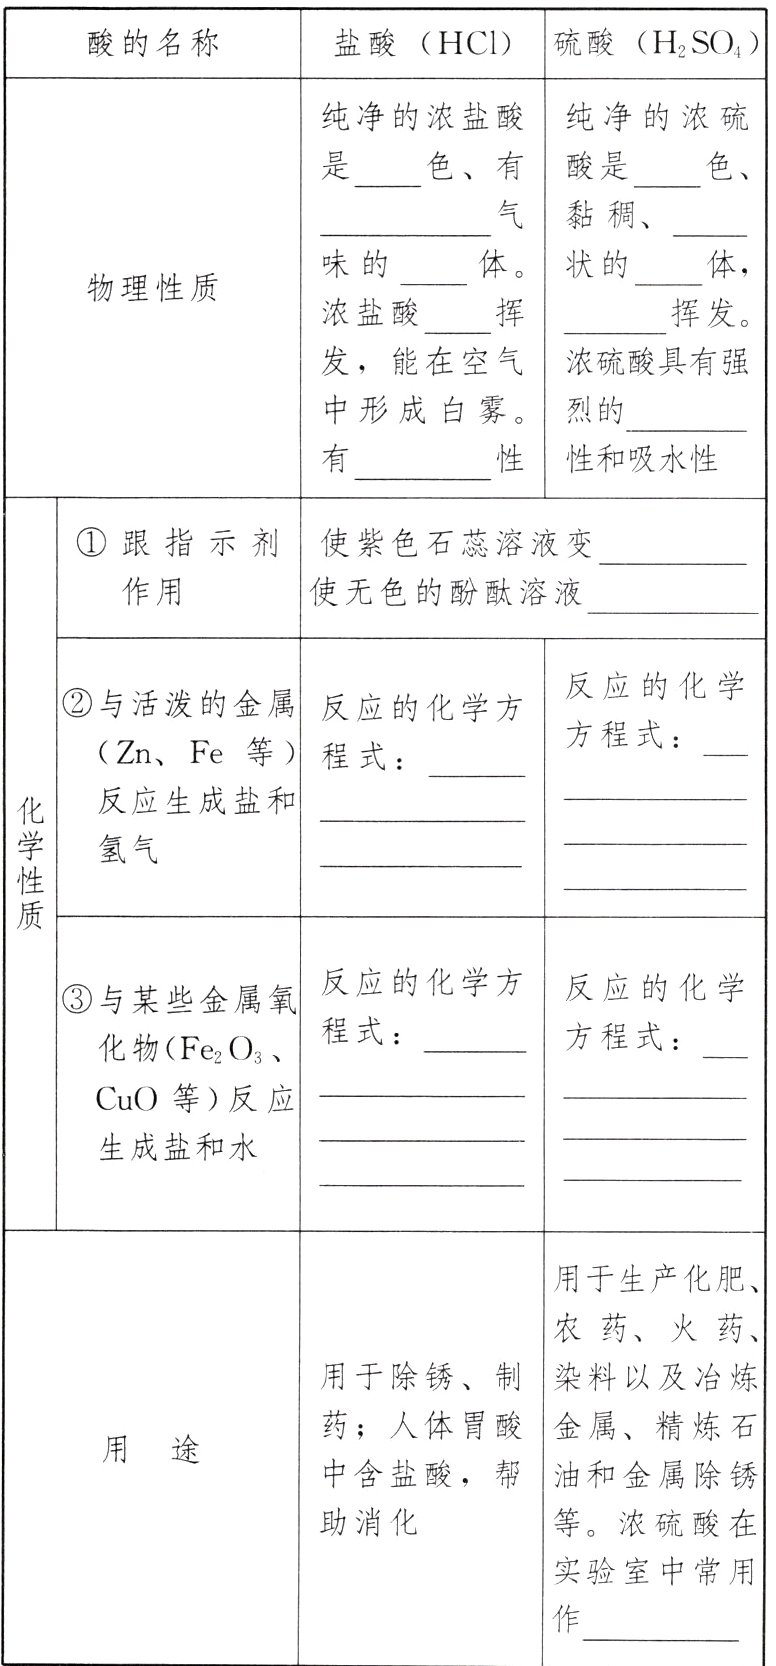 酸的名称
盐酸（HCl）
硫酸（H₂SO₄）
物理性质
纯净的浓盐酸
是____色、有
__________气
味的____体。
浓盐酸____挥
发，能在空气
中形成白雾。
有________性
纯净的浓硫
酸是____色、
黏稠、____
状的____体，
______挥发。
浓硫酸具有强
烈的_______
性和吸水性
化学性质
①跟指示剂
作用
使紫色石蕊溶液变_________
使无色的酚酞溶液__________
②与活泼的金属
（Zn、Fe 等）
反应生成盐和
氢气
反应的化学方
程式：______
____________
____________
反应的化学
方程式：___
___________
___________
___________
③与某些金属氧
化物(Fe₂O₃、
CuO 等)反应
生成盐和水
反应的化学方
程式：______
____________
____________
____________
反应的化学
方程式：___
___________
___________
___________
用 途
用于除锈、制
药；人体胃酸
中含盐酸，帮
助消化
用于生产化肥、
农药、火药、
染料以及冶炼
金属、精炼石
油和金属除锈
等。浓硫酸在
实验室中常用
作_________